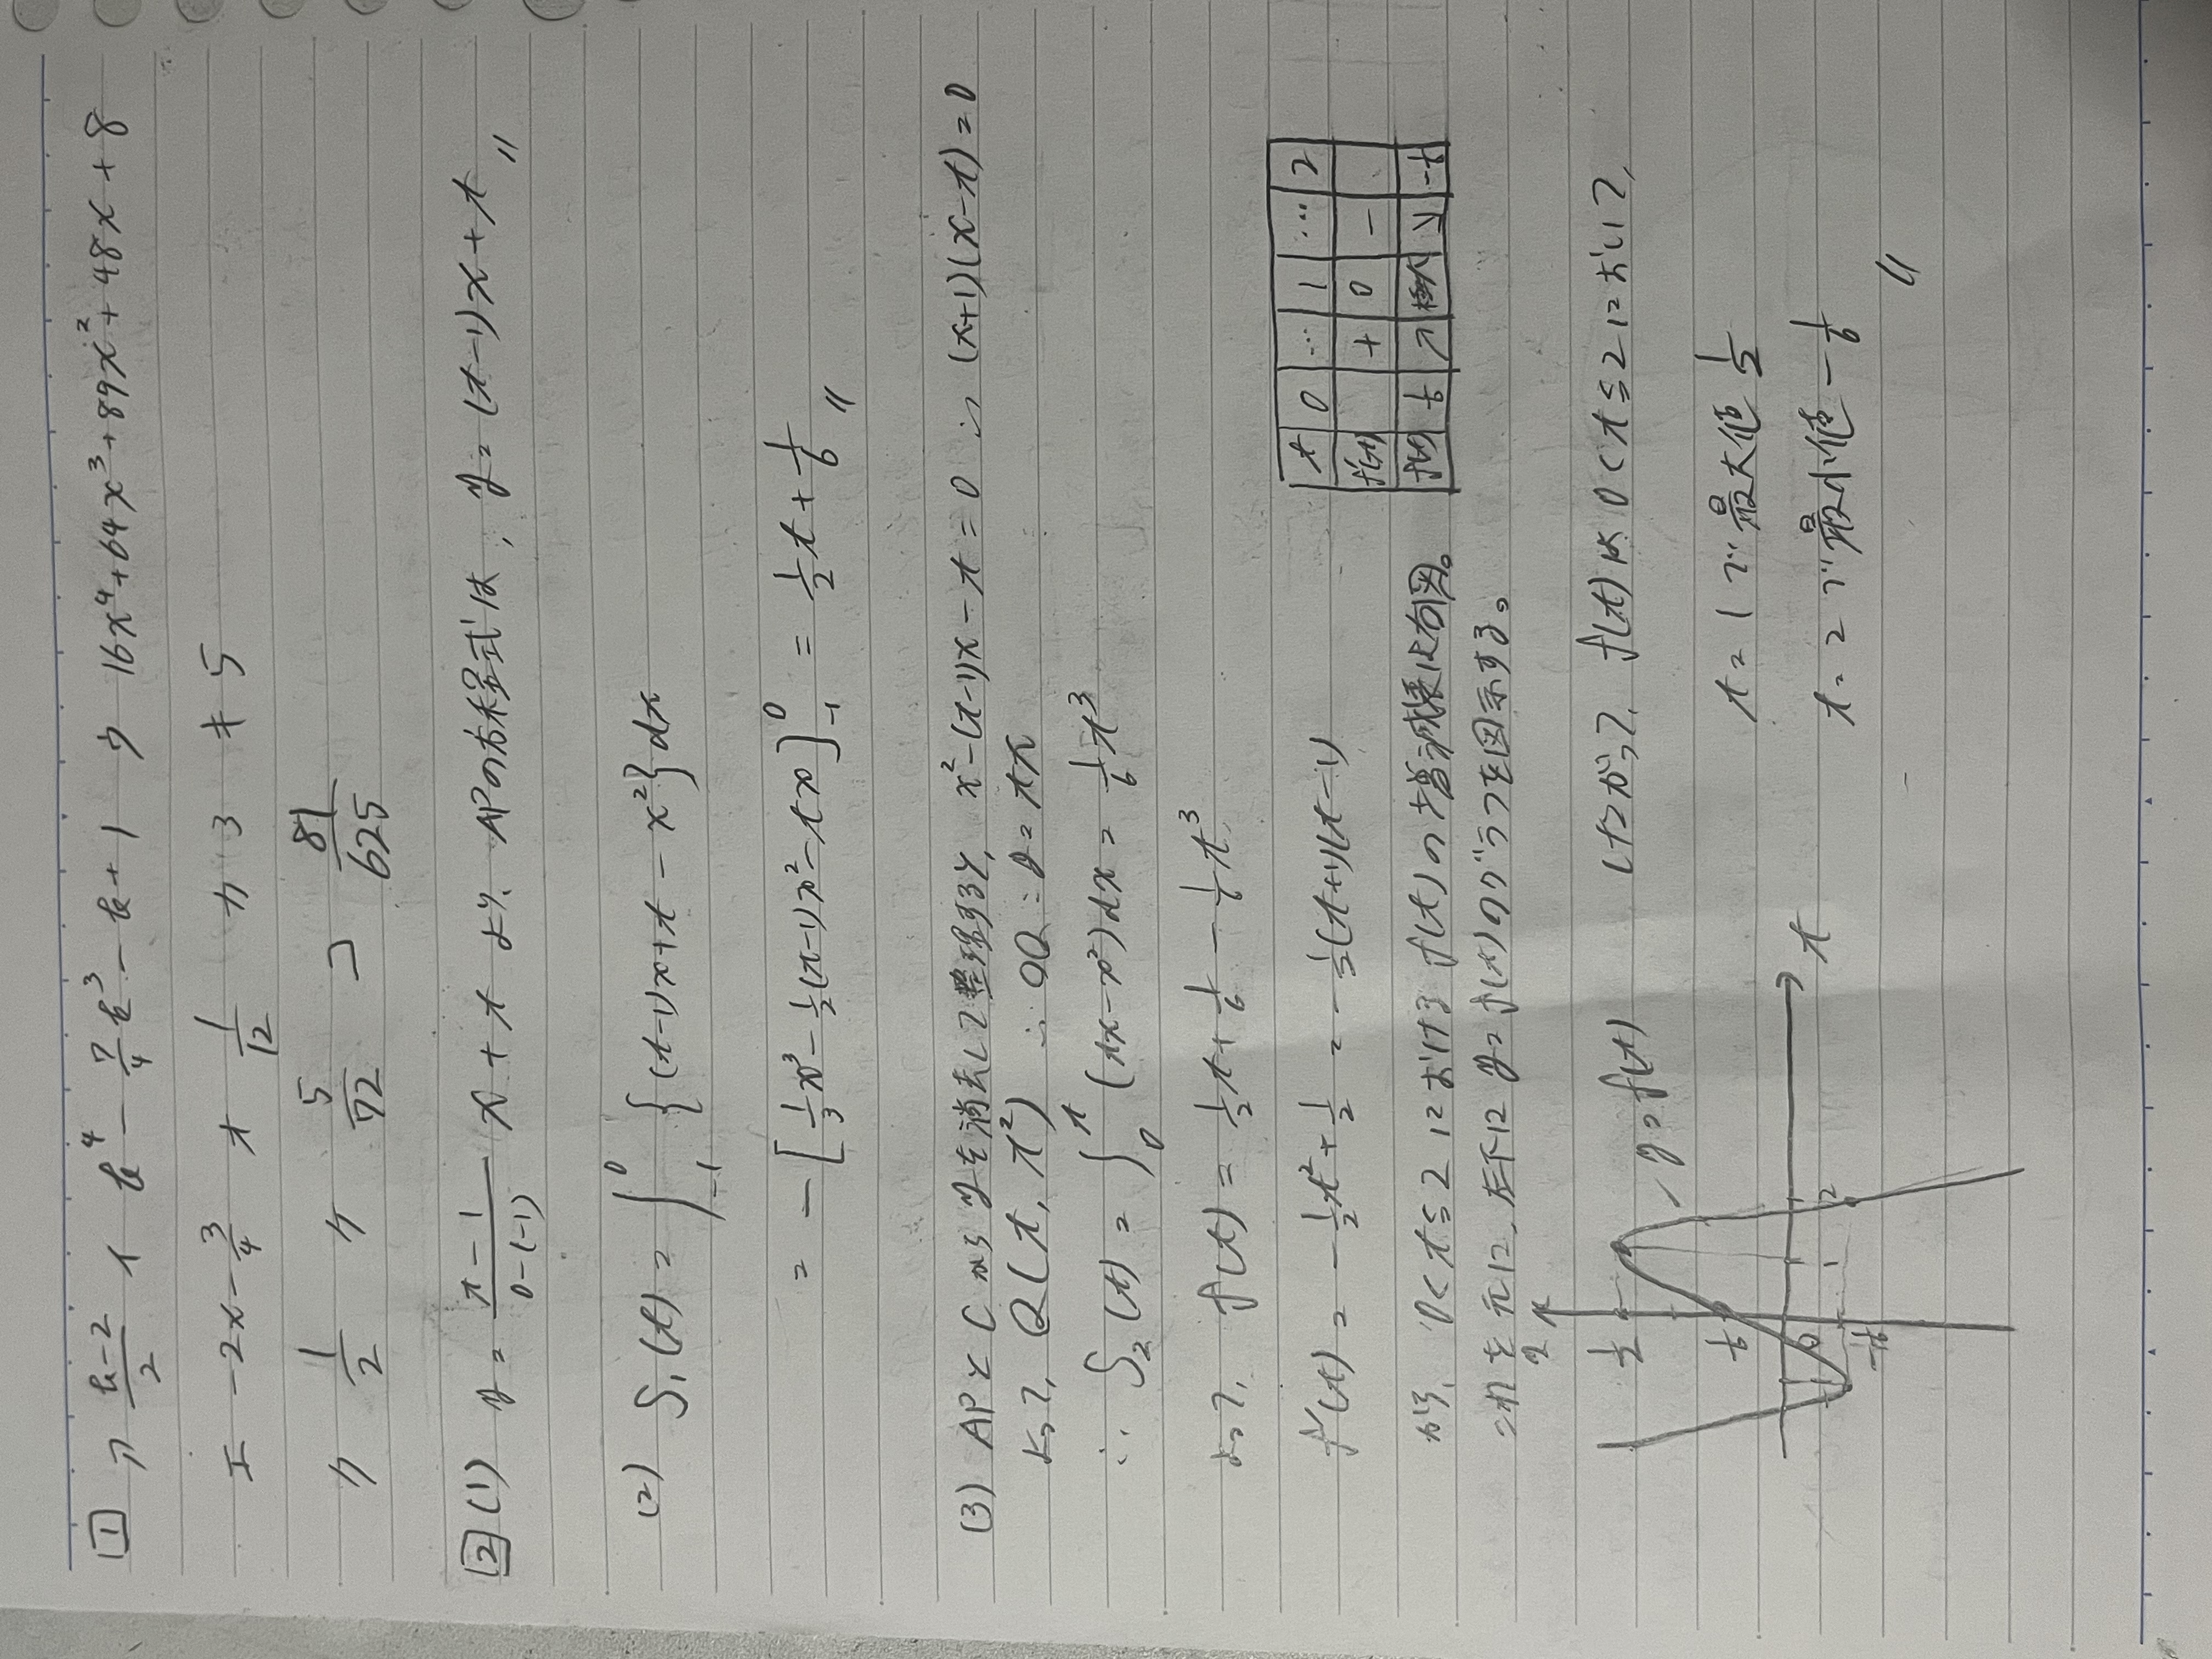 1 ア (k-2)/2 イ k^4 - 7/4 k^3 - k + 1 ウ 16x^4+64x^3+89x^2+48x+8
エ -2x-3/4 オ 1/12 カ 3 キ 5
ク 1/2 ケ 5/72 コ 81/625
2 (1) y = (t-1)/(0-(-1)) x + t より、APの方程式は, y=(t-1)x+t 〃
(2) S₁(t) = ∫_{-1}^{0} {(t-1)x+t-x²}dx
= -[1/3 x³ - 1/2(t-1)x² - tx]_{-1}^{0} = 1/2 t + 1/6 〃
(3) APとCからyを消去して整理すると、x²-(t-1)x-t=0 ∴ (x+1)(x-t)=0
よって, Q(t, t²) ∴ OQ: y=tx
∴ S₂(t) = ∫_{0}^{t} (tx-x²)dx = 1/6 t³
よって, f(t) = 1/2 t + 1/6 - 1/6 t³
f'(t) = -1/2 t² + 1/2 = -1/2 (t+1)(t-1)
から, 0<t≦2 における f(t)の増減表は右図。
t 0 … 1 … 2
f'(t) + 0 -
f(t) 1/6 ↗ 極大 ↘ -1/6
これを元に、左下に y=f(t)のグラフを図示する。
y
1/2
1/6
0
-1/6
1
2
t
y=f(t)
したがって, f(t)は 0<t≦2 において,
t=1 で 最大値 1/2
t=2 で 最小値 -1/6 〃